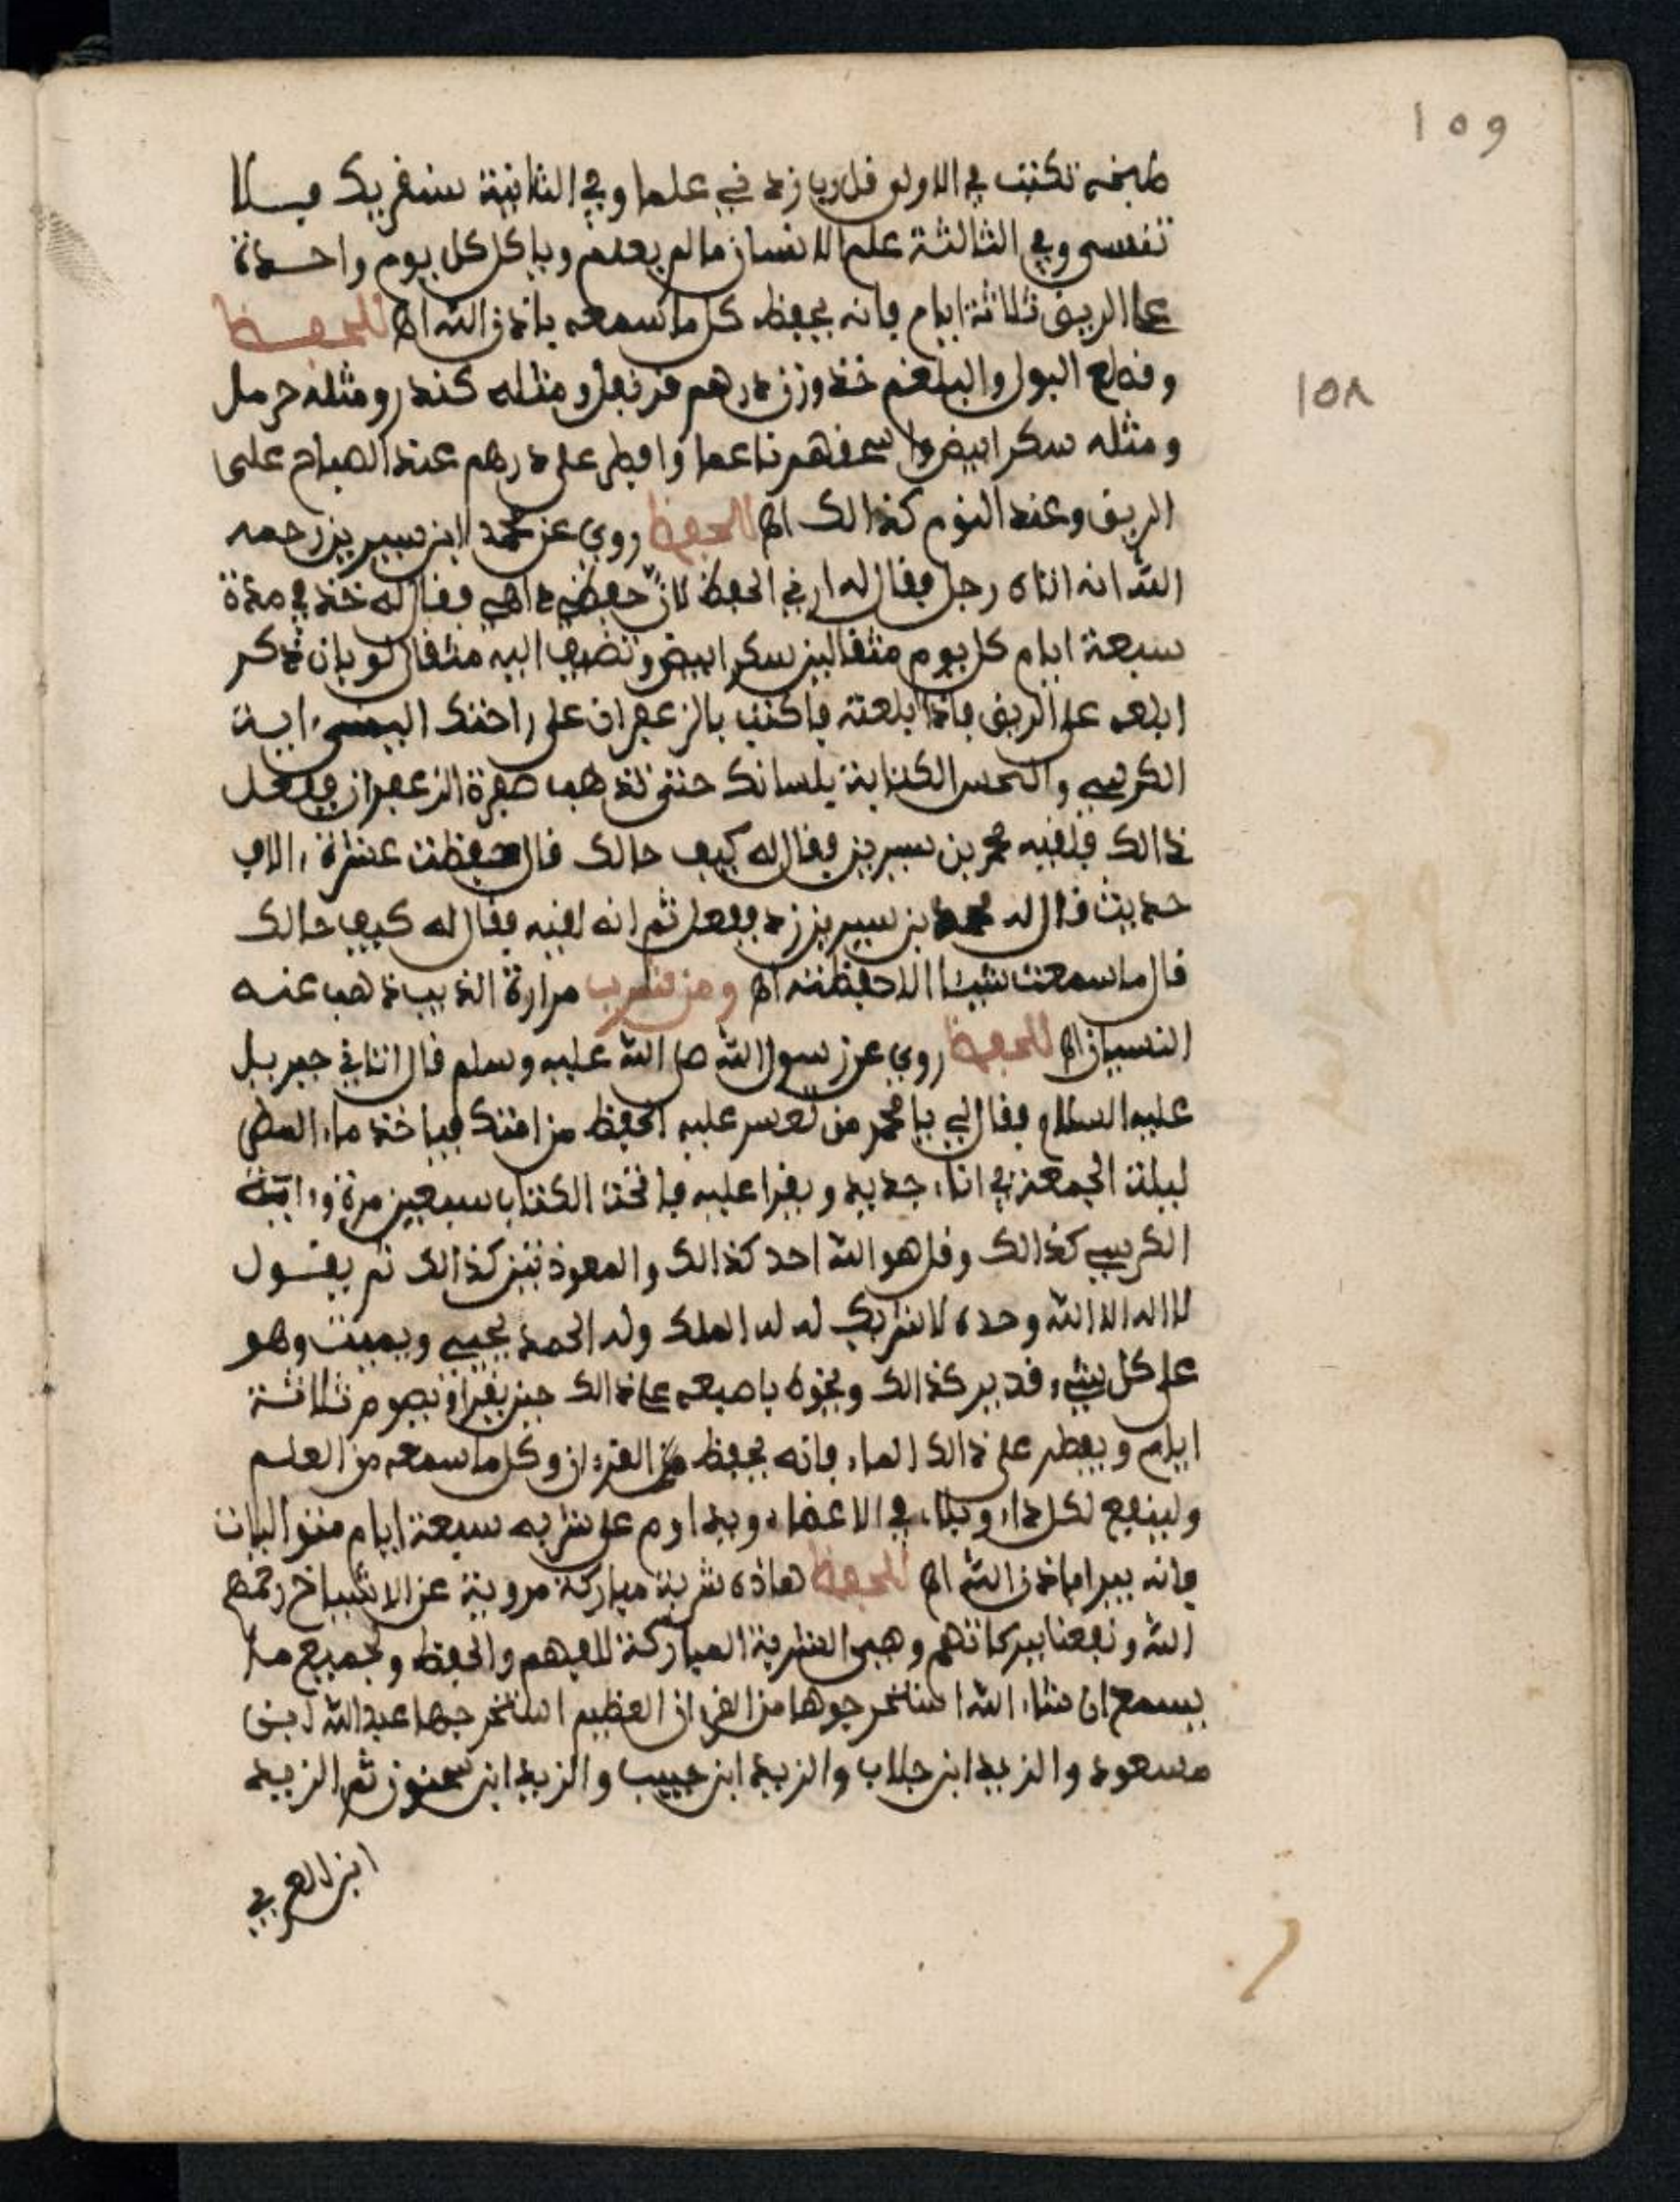 109
طبخه تكتب في الاولى قل رب زدني علما وفي الثانية سنقريك فلا
تنسى وفي الثالثة علم الانسان ما لم يعلم وياكل كل يوم واحدة
على الريق ثلاثة ايام فانه يحفظ كل ما سمعه باذن الله اه للحفظ
وقطع البول والبلغم خذ وزن درهم قرنفل ومثله كندر ومثله حرمل
108
ومثله سكر ابيض واسحقهم ناعما وافطر على درهم عند الصباح على
الريق وعند النوم كذالك اه للحفظ روي عن محمد ابن سيرين رحمه
الله انه اتاه رجل فقال له ارني الحفظ لان حفظي ذاهب فقال له خذ في مدة
سبعة ايام كل يوم مثقالين سكر ابيض وتضيف اليه مثقال لوبان ذكر
ابلعه على الريق فاذا ابلعته فاكتب بالزعفران على راحتك اليمنى ءاية
الكرسي والحس الكتابة بلسانك حتى تذهب صفرة الزعفران ففعل
ذالك فلقيه محمد بن سيرين فقال له كيف حالك قال حفظت عشرة ءالاف
حديث قال له محمد بن سيرين زد ففعل ثم انه لقيه فقال له كيف حالك
قال ما سمعت شيئا الا حفظته اه ومن شرب مرارة الذيب ذهب عنه
النسيان اه للحفظ روي عن رسول الله صلى الله عليه وسلم قال اتاني جبريل
عليه السلام فقال لي يا محمد من تعسر عليه الحفظ من امتك فياخذ ماء المطر
ليلة الجمعة في اناء جديد ويقرا عليه فاتحة الكتاب سبعين مرة وءاية
الكرسي كذالك وقل هو الله احد كذالك والمعوذتين كذالك ثم يقول
لا اله الا الله وحده لا شريك له له الملك وله الحمد يحيي ويميت وهو
على كل شيء قدير كذالك ويحركه باصبعه على ذالك حين يقرا ويصوم ثلاثة
ايام ويفطر على ذالك الماء فانه يحفظ من القرءان وكل ما سمعه من العلم
ولينفع لكل داء وبلاء في الاعضاء ويداوم على شربه سبعة ايام متواليات
فانه يبرا باذن الله اه للحفظ هاذه شربة مباركة مروية عن الاشياخ رحمهم
الله ونفعنا ببركاتهم وهي الشربة المباركة للفهم والحفظ ولجميع ما
يسمع ان شاء الله استخرجوها من القرءان العظيم استخرجها عبد الله ابن
مسعود والزيد ابن جلاب والزيد ابن حبيب والزيد ابن سحنون ثم الزيد
ابن العربي